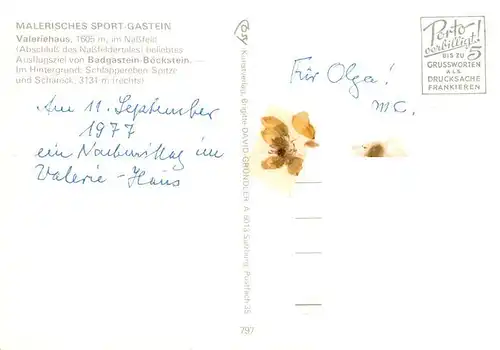 MALERISCHES SPORT-GASTEIN
Valeriehaus, 1605 m, im Naßfeld
(Abschluß des Naßfeldertales) beliebtes
Ausflugsziel von Badgastein-Böckstein. —
Im Hintergrund: Schlappereben Spitze
und Schareck, 3131 m (rechts)
Am 11. September
1977
ein Nachmittag im
Valerie-Haus
Kunstverlag, Brigitte DAVID-GRÜNDLER A 5013 Salzburg, Postfach 35
797
Für Olga!
MC.
Porto
verbilligt!
BIS ZU 5
GRUSSWORTEN
ALS
DRUCKSACHE
FRANKIEREN